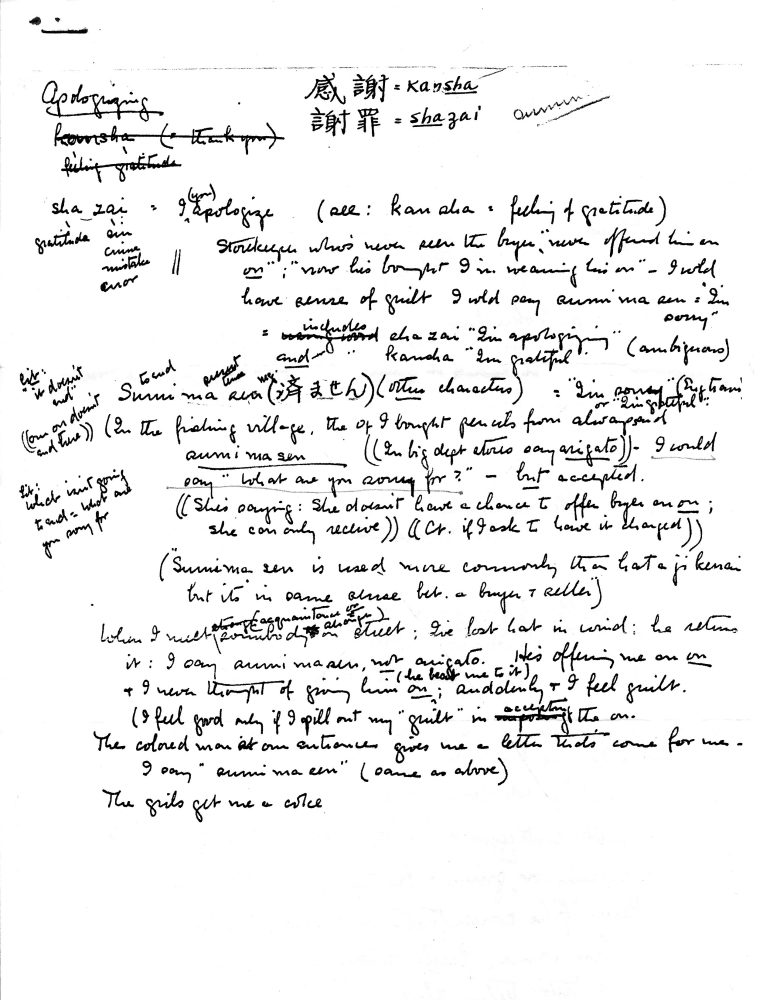 Apologizing
感謝 = kansha
謝罪 = shazai
kansha (= thank you)
feeling gratitude
sha_zai = I (you) apologize (see: kansha = feeling of gratitude)
gratitude sin
crime
mistake
error
|| Storekeeper who's never seen the buyer, "never offered him an
on"; "now he's bought I'm wearing his on" - I wld
have sense of guilt I wld say sumimasen = "I'm
sorry"
= includes shazai "I'm apologizing"
and " kansha "I'm grateful" (ambiguous)
lit:
"it doesn't
end"
((on doesn't
end here))
to end present tense neg.
Sumimasen (済ません) (other characters) = "I'm sorry" (Eng trans
or "I'm grateful".
(In the fishing village, the I bought pencils from always said
sumimasen ((In big dept stores say arigato)) - I would
say "What are you sorry for?" - but accepted.
lit:
what isn't going
to end = what are
you sorry for
((She's saying: She doesn't have a chance to offer buyer an on;
she can only receive)) ((Cf. if I ask to have it charged))
("Sumimasen is used more commonly than katajikenai
but it's in same sense bet. a buyer + seller")
When I meet somebody (acquaintance or stranger) on street; I've lost hat in wind; he returns
it: I say sumimasen, not arigato. He's offering me an on
+ I never thought of giving him on (he beat me to it); suddenly + I feel guilt.
(I feel good only if I spill out my "guilt" in accepting the on.
The colored man at our entrance gives me a letter that's come for me -
I say "sumimasen" (same as above)
The girls get me a coke